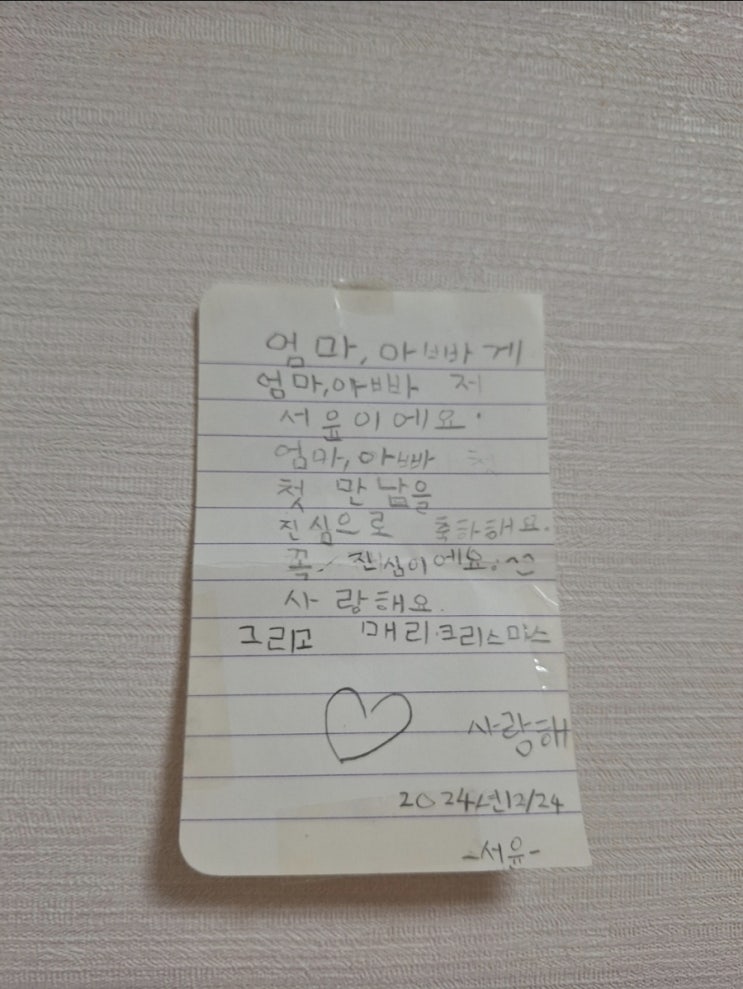 엄마, 아빠게
엄마,아빠 저
서윤이에요.
엄마, 아빠 첫
첫 만남을
진심으로 축하해요.
꼭 진심이에요. ^^
사랑해요.
그리고 매리크리스마스
사랑해
2024년12/24
-서윤-